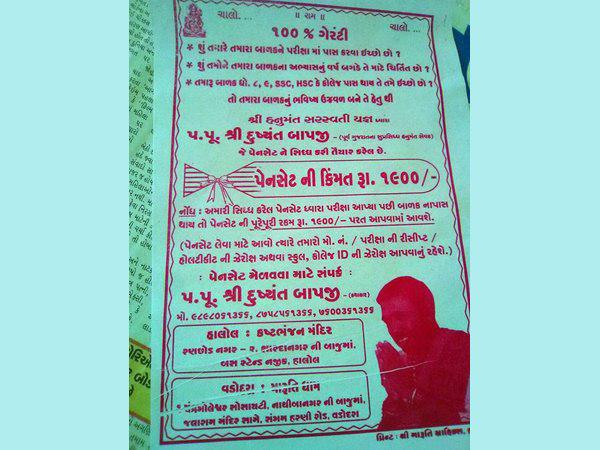 ચાલો. ... ॥ રામ ॥ ચાલો. ...
૧૦૦ % ગેરંટી
* શું તમારે તમારા બાળકને પરીક્ષા માં પાસ કરવા ઈચ્છો છો ?
* શું તમોને તમારા બાળકના અભ્યાસનું વર્ષ બગડે તે માટે ચિંતિત છો ?
* તમારૂ બાળક ધો. ૮, ૯, SSC, HSC કે કોલેજ પાસ થાય તે તમે ઈચ્છો છો ?
તો તમારા બાળકનું ભવિષ્ય ઉજ્વળ બને તે હેતુ થી
શ્રી હનુમંત સરસ્વતી યજ્ઞ ધ્વારા
પ.પૂ. શ્રી દુષ્યંત બાપજી - (પૂર્વ ગુજરાતના સુપ્રસિધ્ધ હનુમંત સેવક)
જે પેનસેટ ને સિધ્ધ કરી તૈયાર કરેલ છે.
પેનસેટ ની કિંમત રૂા. ૧૯૦૦/-
નોંધ : અમારી સિધ્ધ કરેલ પેનસેટ ધ્વારા પરીક્ષા આપ્યા પછી બાળક નાપાસ
થાય તો પેનસેટ ની પૂરેપૂરી રકમ રૂા. ૧૯૦૦/- પરત આપવામાં આવશે.
(પેનસેટ લેવા માટે આવો ત્યારે તમારો મો. નં. / પરીક્ષા ની રીસીપ્ટ /
હોલટીકીટ ની ઝેરોક્ષ અથવા સ્કુલ, કોલેજ ID ની ઝેરોક્ષ આપવાનું રહેશે.)
: પેનસેટ મેળવવા માટે સંપર્ક :
પ.પૂ. શ્રી દુષ્યંત બાપજી - (કથાકાર)
મો. ૯૮૯૮૦૬૧૩૬૬, ૮૭૫૮૫૬૧૩૬૬, ૭૬૦૦૩૬૧૩૬૬
હાલોલ : કષ્ટભંજન મંદિર
રણછોડ નગર - ૨, શારદાનગર ની બાજુમાં,
બસ સ્ટેન્ડ નજીક, હાલોલ
વડોદરા : મારૂતિ ધામ
ચંદ્રમોલેશ્વર સોસાયટી, નાથીબાનગર ની બાજુમાં,
જલારામ મંદિર સામે, સંગમ હરણી રોડ, વડોદરા
પ્રિન્ટ : શ્રી મારૂતિ ગ્રાફિક્સ,